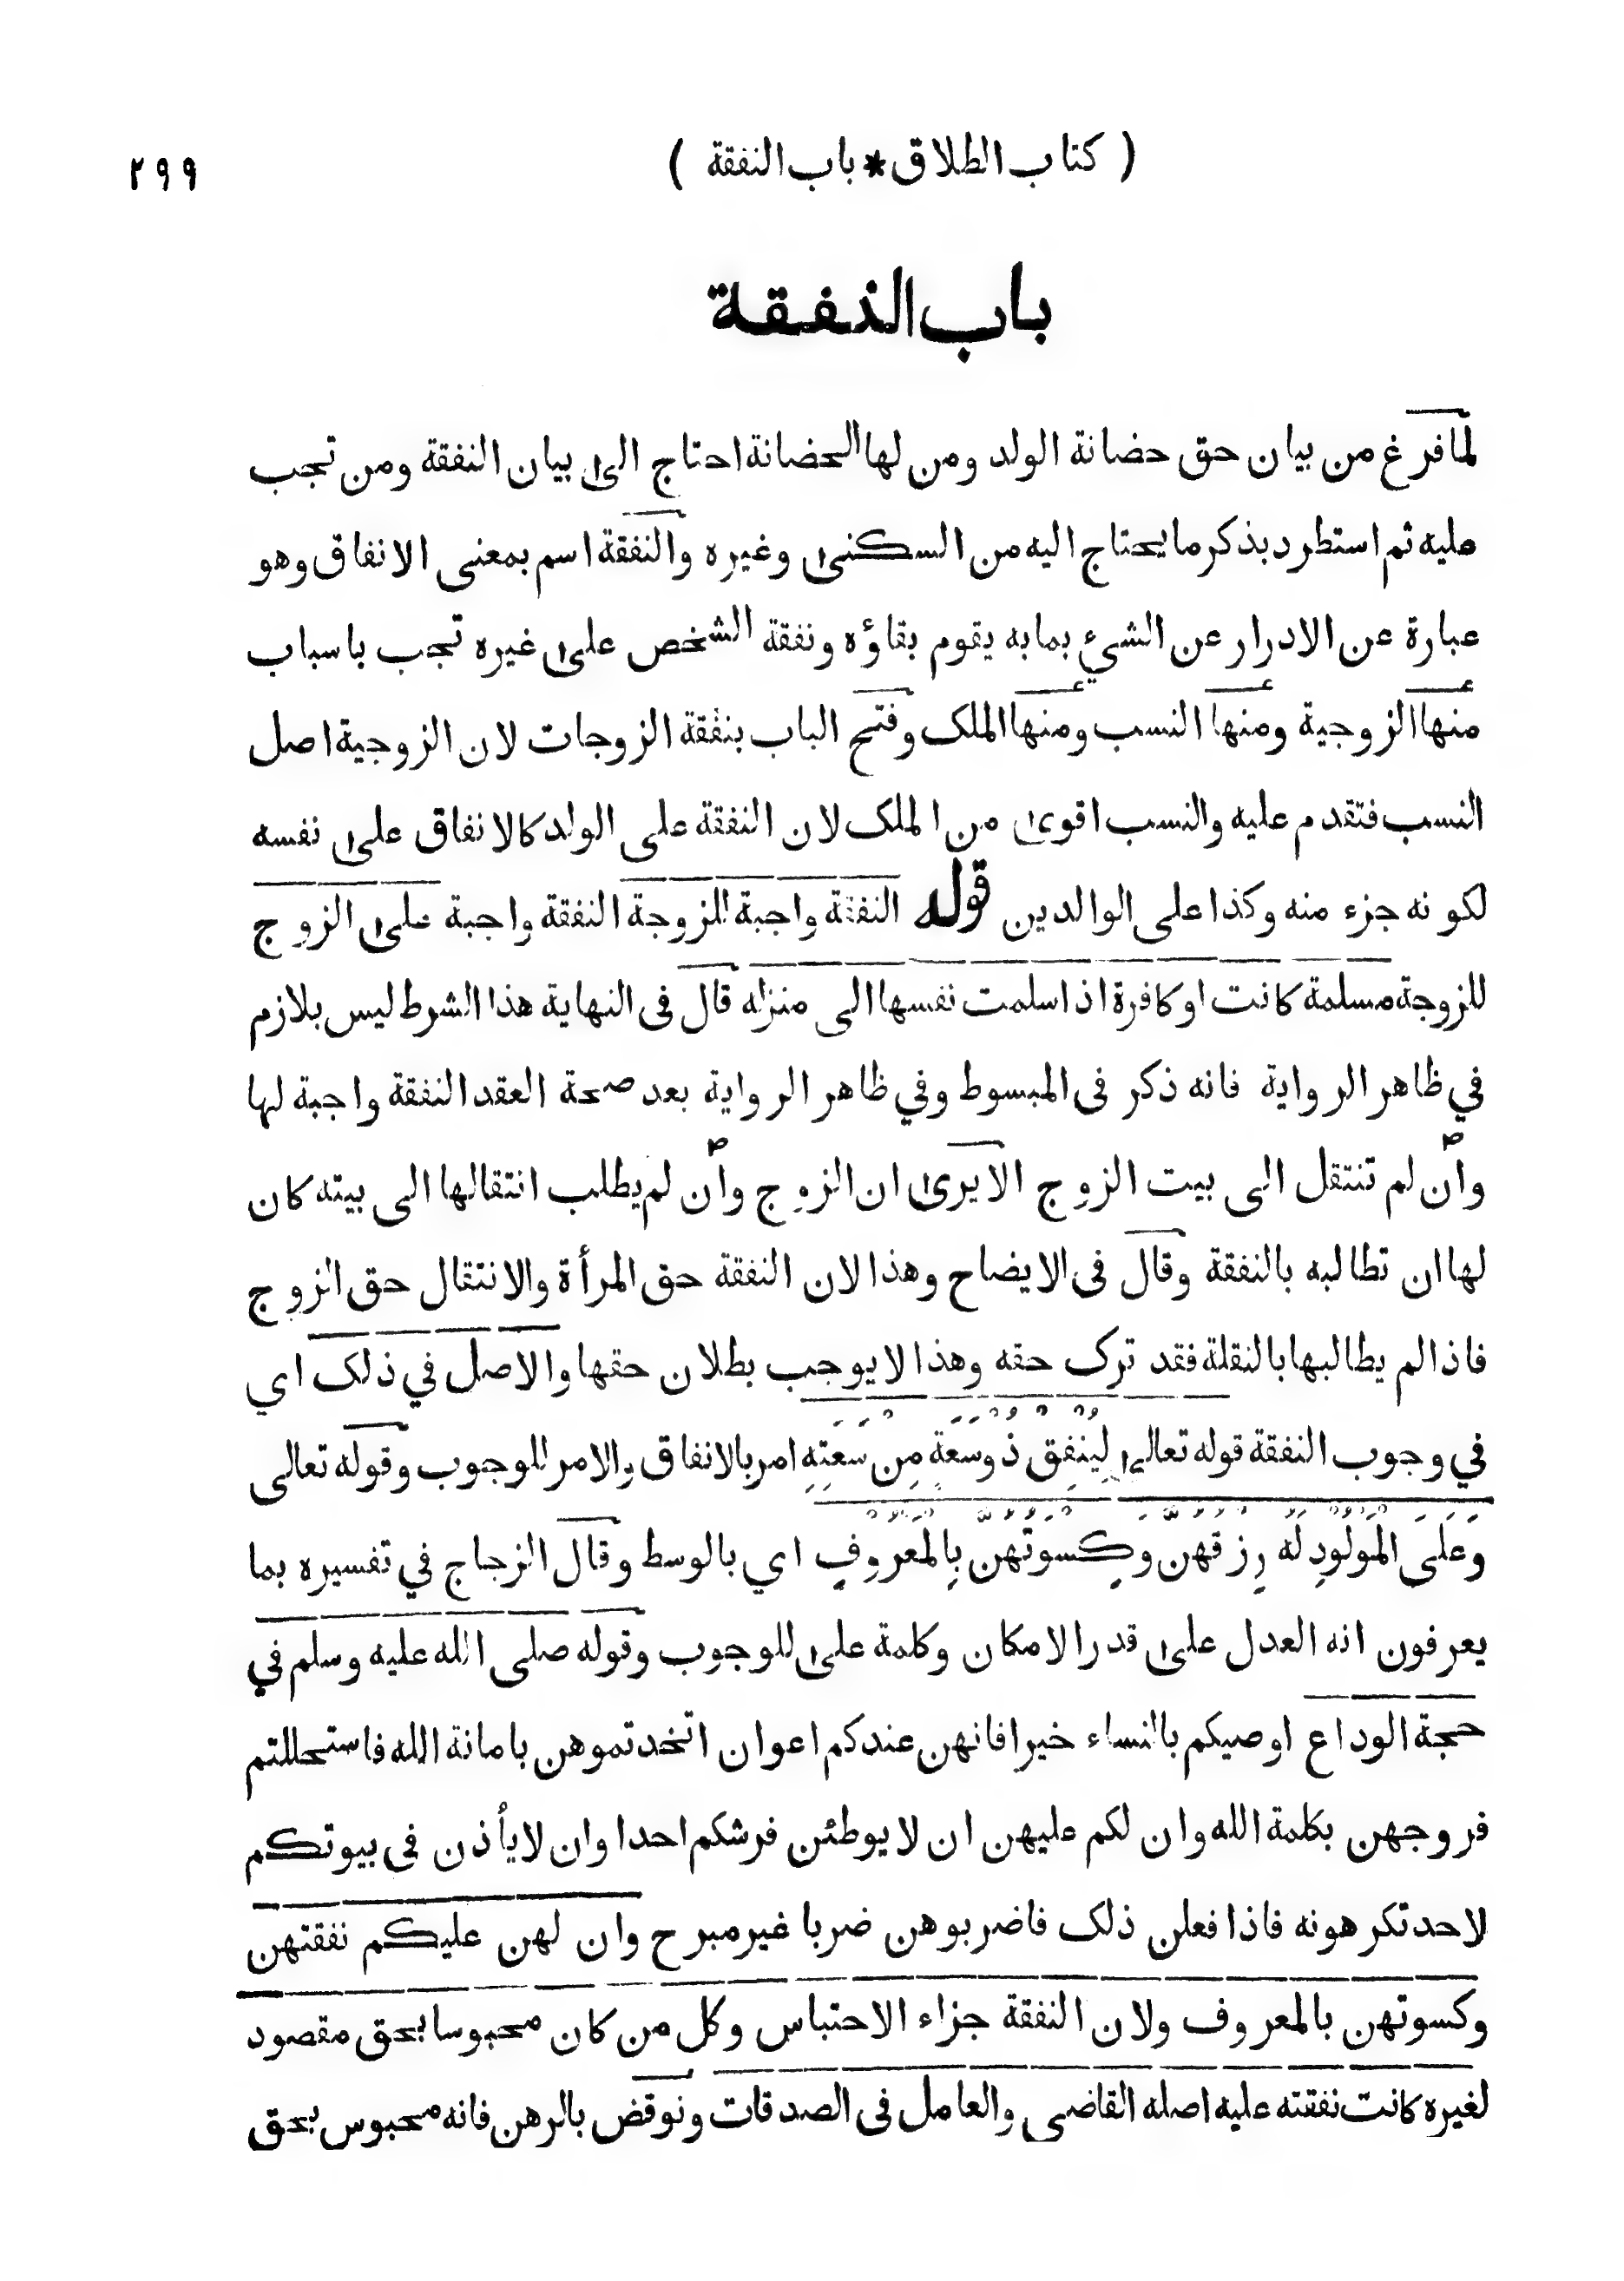 ( كتاب الطلاق * باب النفقة )
٢٩٩
باب النفقة
لما فرغ من بيان حق حضانة الولد ومن لها الحضانة احتاج الى بيان النفقة ومن تجب
عليه ثم استطرد بذكر ما يحتاج اليه من السكنى وغيره والنفقة اسم بمعنى الانفاق وهو
عبارة عن الادرار عن الشيء بما به يقوم بقاؤه ونفقة الشخص على غيره تجب باسباب
منها الزوجية ومنها النسب ومنها الملك وفتح الباب بنفقة الزوجات لان الزوجية اصل
النسب فتقدم عليه والنسب اقوى من الملك لان النفقة على الولد كالانفاق على نفسه
لكونه جزء منه وكذا على الوالدين قوله النفقة واجبة للزوجة النفقة واجبة على الزوج
للزوجة مسلمة كانت او كافرة اذا سلمت نفسها الى منزله قال فى النهاية هذا الشرط ليس بلازم
في ظاهر الرواية فانه ذكر فى المبسوط وفي ظاهر الرواية بعد صحة العقد النفقة واجبة لها
وان لم تنتقل الى بيت الزوج الا يرى ان الزوج وان لم يطلب انتقالها الى بيته كان
لها ان تطالبه بالنفقة وقال فى الايضاح وهذا لان النفقة حق المرأة والانتقال حق الزوج
فاذا لم يطالبها بالنقلة فقد ترك حقه وهذا لا يوجب بطلان حقها والاصل في ذلك اي
في وجوب النفقة قوله تعالى لِيُنْفِقْ ذُوْسَعَةٍ مِنْ سَعَتِهِ امر بالانفاق والامر للوجوب وقوله تعالى
وَعَلَى الْمَوْلُوْدِ لَهُ رِزْقُهُنَّ وَكِسْوَتُهُنَّ بِالْمَعْرُوْفِ اي بالوسط وقال الزجاج في تفسيره بما
يعرفون انه العدل على قدر الامكان وكلمة على للوجوب وقوله صلى الله عليه وسلم في
حجة الوداع اوصيكم بالنساء خيرا فانهن عندكم اعوان اتخدتموهن بامانة الله فاستحللتم
فروجهن بكلمة الله وان لكم عليهن ان لا يوطئن فرشكم احدا وان لا يأذن فى بيوتكم
لاحد تكرهونه فاذا فعلن ذلك فاضربوهن ضربا غير مبرح وان لهن عليكم نفقتهن
وكسوتهن بالمعروف ولان النفقة جزاء الاحتباس وكل من كان محبوسا بحق مقصود
لغيره كانت نفقته عليه اصله القاضى والعامل فى الصدقات ونوقض بالرهن فانه محبوس بحق